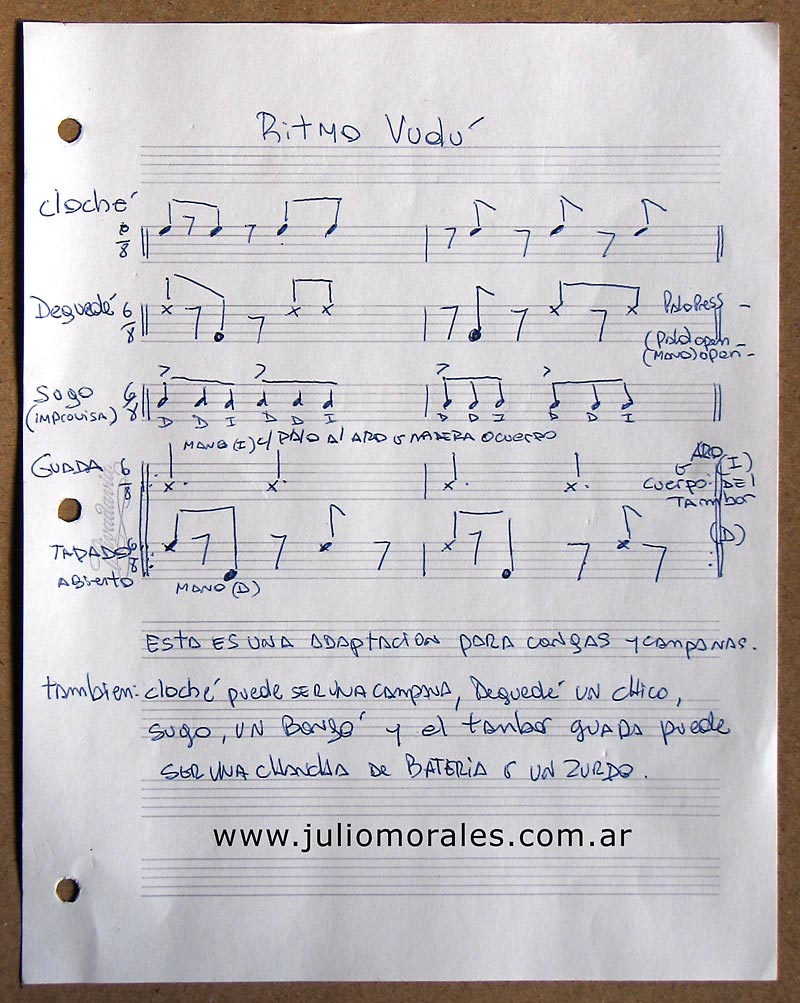 Ritmo Vudú
cloché
6/8
Deguedé 6/8
Palo Press -
(Palo) open -
(mano) open -
Sogo 6/8
(improvisa)
D D I D D I D D I D D I
mano (I) c/ palo al aro ó madera o cuerpo
Guada 6/8
aro (I)
ó
cuerpo del
tambor
(D)
Tapado 6/8
abierto
mano (D)
Esta es una adaptacion para congas y campanas.
tambien: cloché puede ser una campana, Deguedé un chico,
sugo, un Bongó y el tambor guada puede
ser una chancha de Bateria ó un zurdo.
www.juliomorales.com.ar